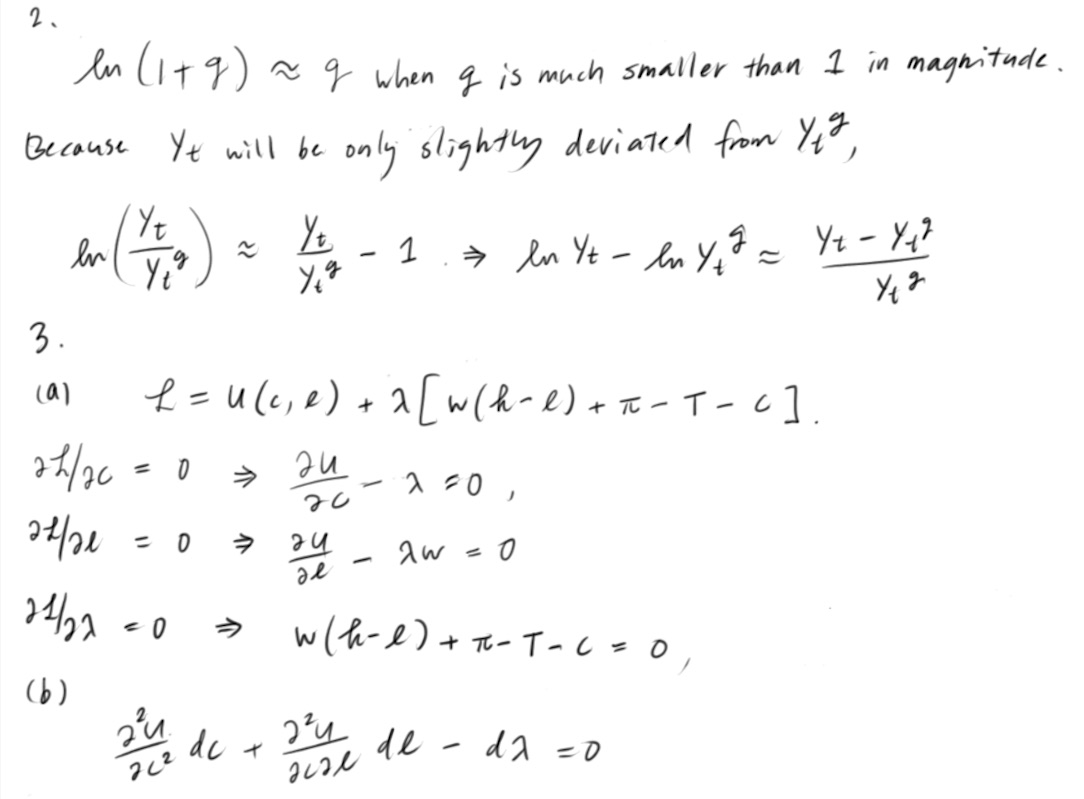 2.
ln(1+g) ≈ g when g is much smaller than 1 in magnitude.
Because Yt will be only slightly deviated from Yt^g,
ln(Yt/Yt^g) ≈ Yt/Yt^g - 1. ⇒ ln Yt - ln Yt^g ≈ (Yt - Yt^g)/Yt^g
3.
(a) ℒ = u(c, l) + λ[w(h-l) + π - T - c].
∂ℒ/∂c = 0 ⇒ ∂u/∂c - λ = 0,
∂ℒ/∂l = 0 ⇒ ∂u/∂l - λw = 0
∂ℒ/∂λ = 0 ⇒ w(h-l) + π - T - c = 0,
(b)
∂²u/∂c² dc + ∂²u/∂c∂l dl - dλ = 0